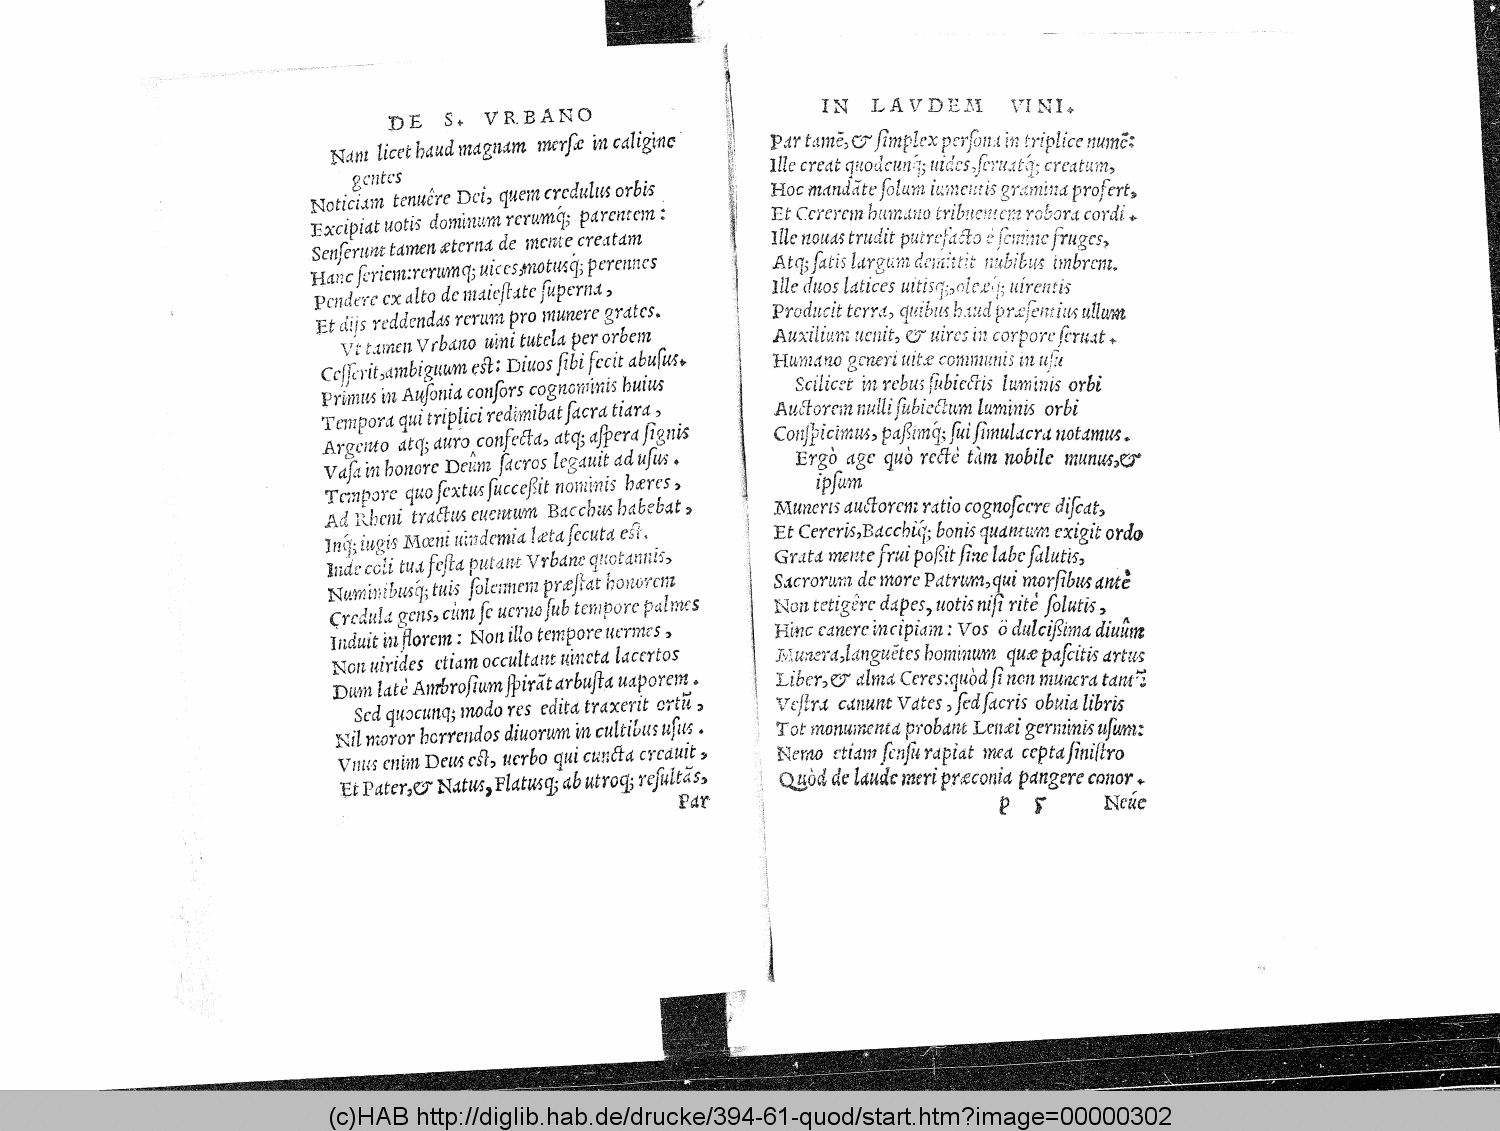 DE S. VRBANO
Nam licet haud magnam mersæ in caligine
gentes
Noticiam tenuêre Dei, quem credulus orbis
Excipiat uotis dominum rerumq́; parentem:
Senserunt tamen æterna de mente creatam
Hanc seriem: rerumq; uices, motusq́; perennes
Pendere ex alto de maiestate superna,
Et dijs reddendas rerum pro munere grates.
Vt tamen Vrbano uini tutela per orbem
Cesserit, ambiguum est: Diuos sibi fecit abusus.
Primus in Ausonia consors cognominis huius
Tempora qui triplici redimibat sacra tiara,
Argento atq; auro confecta, atq; aspera signis
Vasa in honore Deûm sacros legauit ad usus.
Tempore quo sextus successit nominis hæres,
Ad Rheni tractus euentum Bacchus habebat,
Inq́; iugis Mœni uindemia læta secuta est.
Inde coli tua festa putant Vrbane quotannis,
Numinibusq́; tuis solennem præstat honorem
Credula gens, cùm se uerno sub tempore palmes
Induit in florem: Non illo tempore uermes,
Non uirides etiam occultant uineta lacertos
Dum latè Ambrosium spirāt arbusta uaporem.
Sed quocunq; modo res edita traxerit ortū,
Nil moror horrendos diuorum in cultibus usus.
Vnus enim Deus est, uerbo qui cuncta creauit,
Et Pater, & Natus, Flatusq; ab utroq; resultās,
Par
IN LAVDEM VINI.
Par tamē, & simplex persona in triplice numē:
Ille creat quodcunq́; uides, seruatq́; creatum,
Hoc mandāte solum iumentis gramina profert,
Et Cererem humano tribuentem robora cordi.
Ille nouas trudit putrefacto è semine fruges,
Atq; satis largum demittit nubibus imbrem.
Ille duos latices uitisq;, oleæq́; uirentis
Producit terra, quibus haud præsentius ullum
Auxilium uenit, & uires in corpore seruat.
Humano generi uitæ communis in usu
Scilicet in rebus subiectis luminis orbi
Auctorem nulli subiectum luminis orbi
Conspicimus, passimq́; sui simulacra notamus.
Ergò age quò rectè tàm nobile munus, &
ipsum
Muneris auctorem ratio cognoscere discat,
Et Cereris, Bacchiq́; bonis quantum exigit ordo
Grata mente frui possit sine labe salutis,
Sacrorum de more Patrum, qui morsibus antè
Non tetigêre dapes, uotis nisi ritè solutis,
Hinc canere incipiam: Vos ô dulcissima diuûm
Munera, languētes hominum quæ pascitis artus
Liber, & alma Ceres: quòd si non munera tantū
Vestra canunt Vates, sed sacris obuia libris
Tot monumenta probant Lenæi germinis usum:
Nemo etiam sensu rapiat mea cepta sinistro
Quòd de laude meri præconia pangere conor.
P 5 Neúe
(c)HAB http://diglib.hab.de/drucke/394-61-quod/start.htm?image=00000302